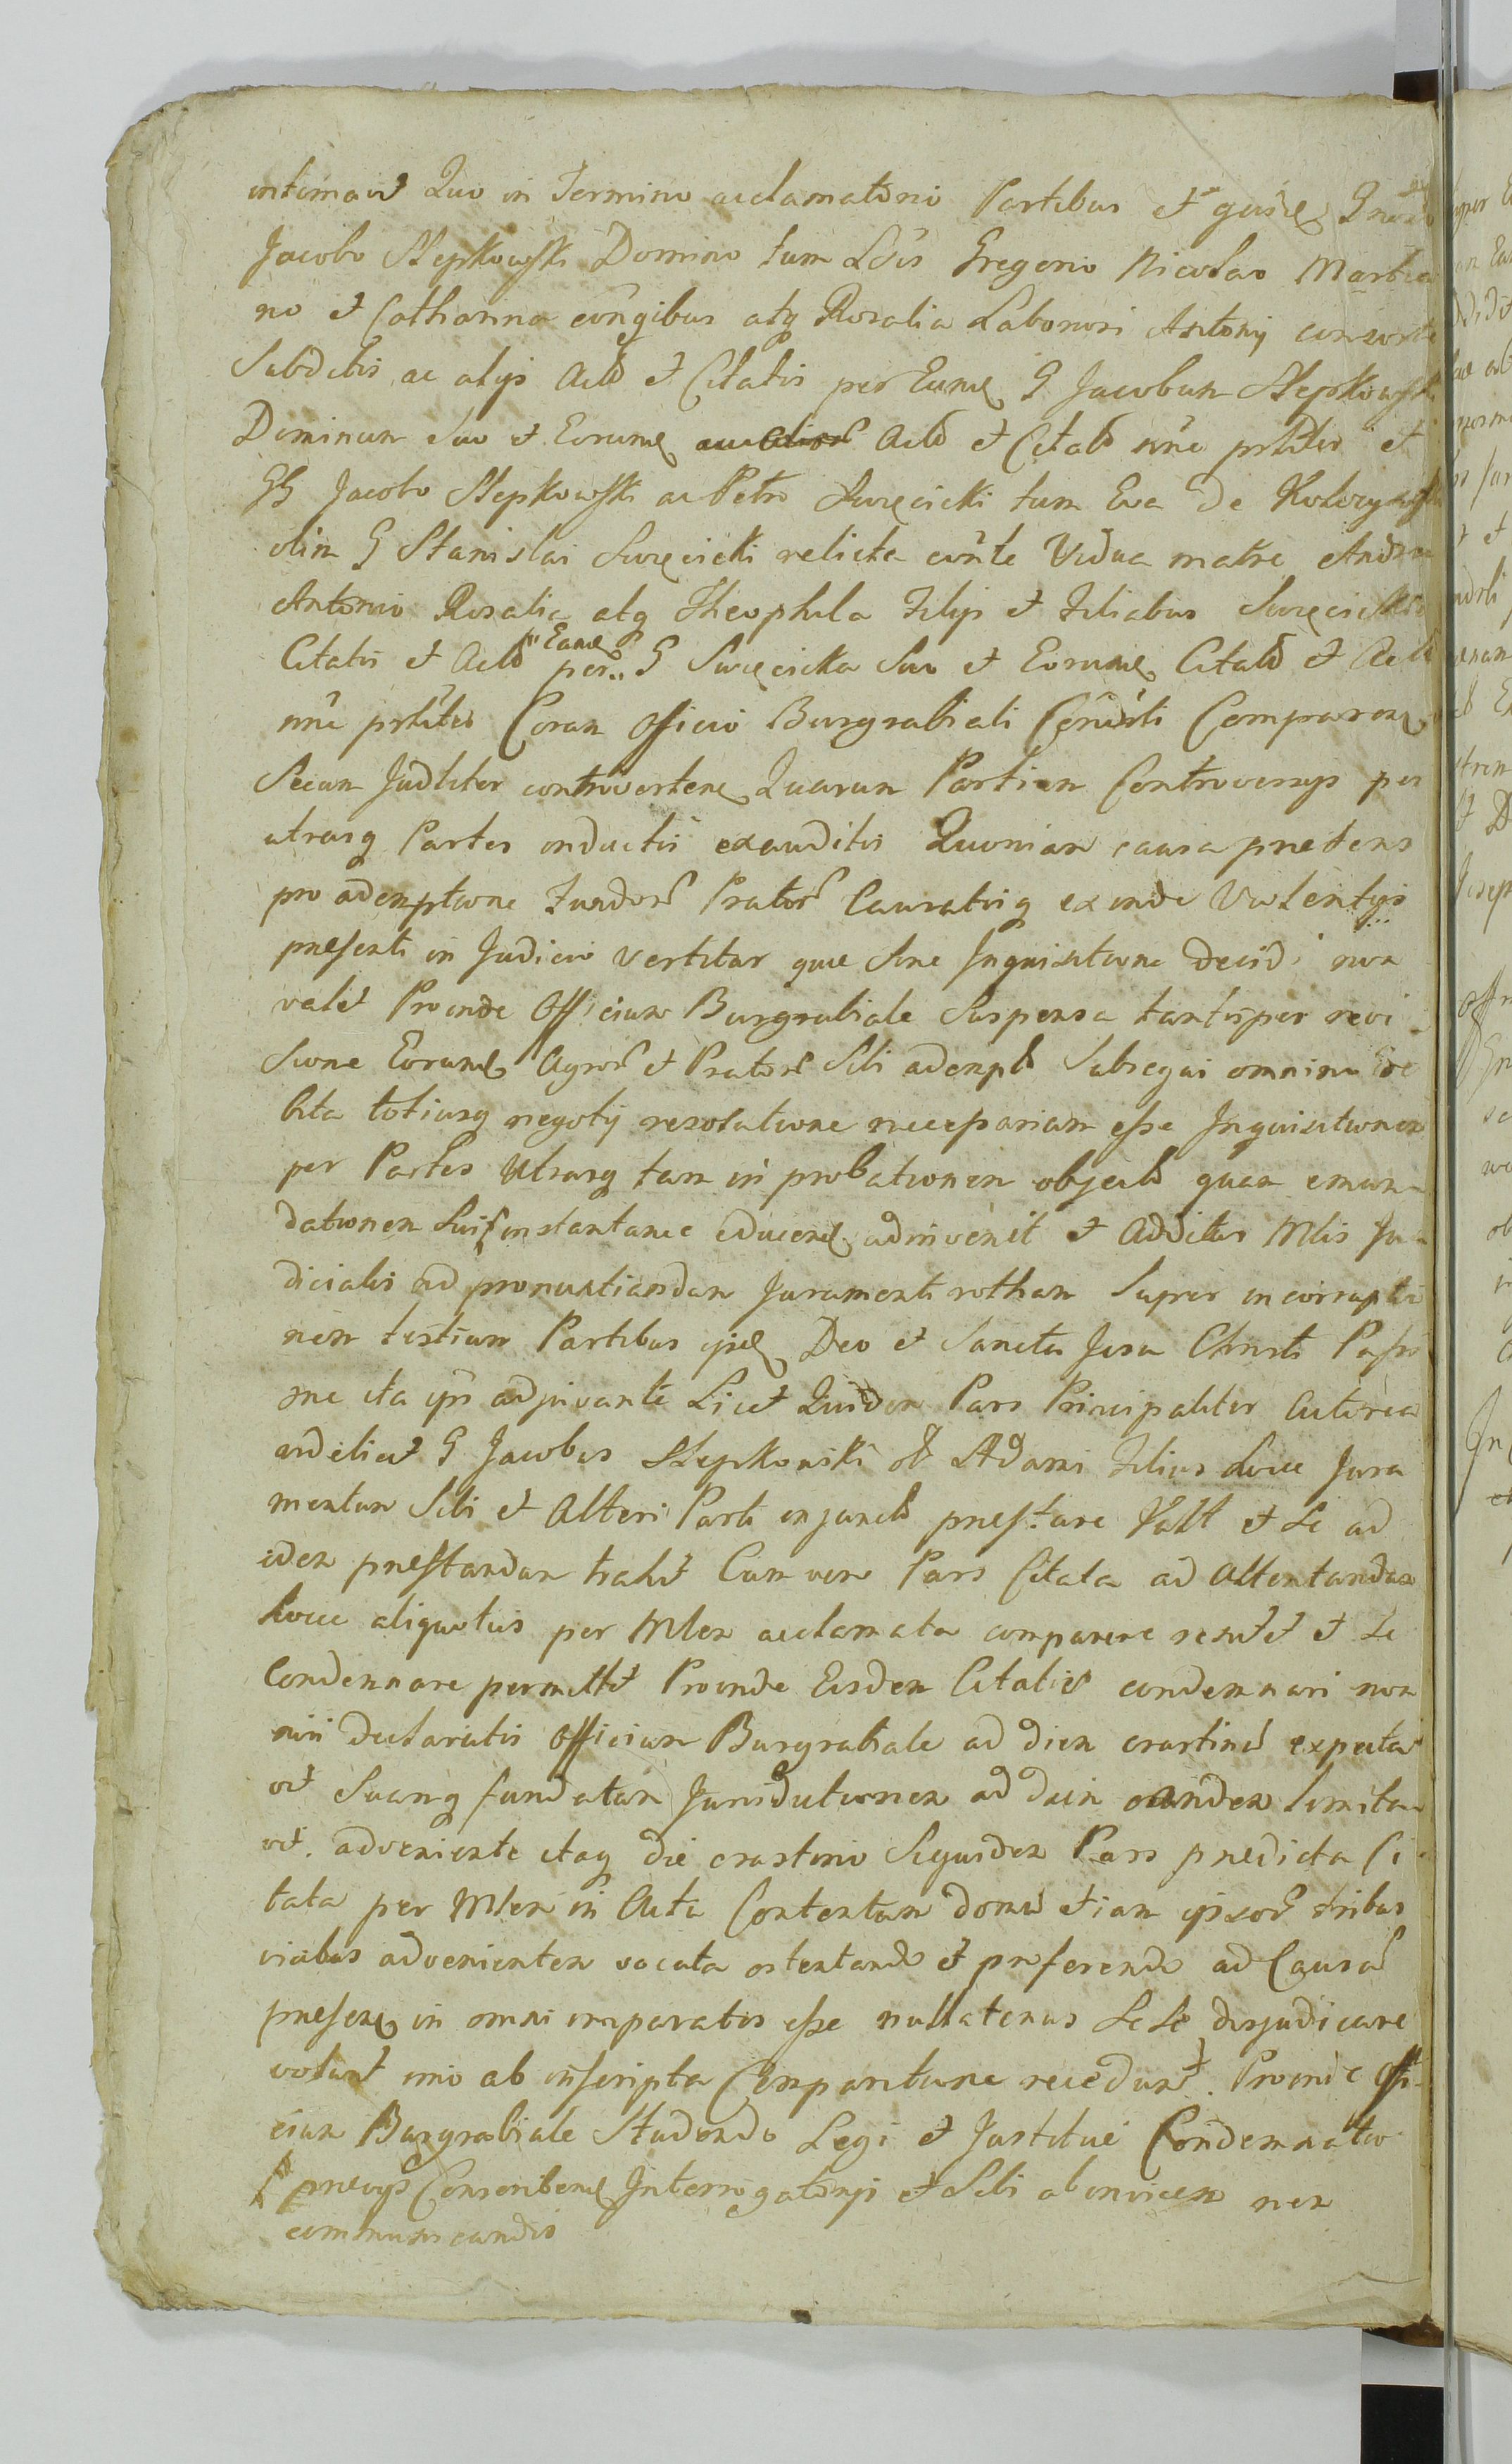 intimavit Quo in Termino acclamatoño Partibus et quidē
Jacobo Stepkowski Domino tum Lōis Gregorio Nicolao Martia
no et Catharina coñgibus atq Rosalia Laboriosi Antonij consorte
Subditis ac alijs Actõ et Citatis per Eundē G Jacobum Stepkowski
Dominum suo et Eorundē Actõ et Citatõ nñe pñliter et
GG Jacobo Stepkowski ac Petro Swięcicki tum Eva de
olim G Stanislai Swięcicki relicta coñte Vidua matre Andrea
Antonio Rosalia atq Theophila Filijs et Filiabus Swięcickie
Citatis et Actõ per Eandē G Swięcicka suo et Eorundē Citatõ et Actõ
nñe pñliter Coram Officio Burgrabiali Comparen
Secum Judliter controverten Quarum Partium Controversijs per
utrasq Partes inductis exauditis Quoniam causa prætens
pro ademptione Fundorũ Pratorũ Causatisq exinde Violentijs
præsenti in Judicio vertitur quæ sine Inquisitione decidi non
valet Proinde Officium Burgrabiale Suspensa tantisper revi
sione Eorundē Agrorũ et Pratorũ sibi adempt Subsequi omnino
bita totiusq negotij resolutione necessariam esse Inquisitionem
per Partes Utrasq tam in probationem objectõ quam emun
dationem Sui instantanee educen adinvenit et Additus Mlis Ju
dicialis ad pronuntiandam Juramenti rotham Super incorruptio
nem testium Partibus ipsis Deo et Sancta Jesu Christi Passio
ne ita ipsi adjuvante Licet Quidem Pars Principaliter Actorea
videlicet G Jacobus Stepkowski ol Adami Filius Loco Jura
mentum Sibi et Alteri Parti injunctõ præstare Vult et Se ad
idem præstandum trahit Cum vero Pars Citata ad Attentandum
Loco aliquoties per Mlem acclamata comparere renuit et Se
Condemnare permittit Proinde Eisdem Citatis condemnari non
nisi declaratis Officium Burgrabiale ad diem crastinũ expecta
vit Suamq fundatam Jurisdictionem ad diem eandem limita
vit. adveniente itaq die crastino Siquidem Pars prædicta Ci
tata per Mlem in Acta Contentum domũ etiam ipsorũ tribus
vicibus advenientem vocata ostentando et præferendo ad Causã
præsen in omni imparatos esse nullatenus Sese disjudicare
volunt imo ab inscripta Comparitione recedunt. Proinde Offi
cium Burgrabiale Studendo Legi et Justitiæ Condemnatio
prævijs Conscriben Interrogatorijs et Sibi ab invicem non
communicandis